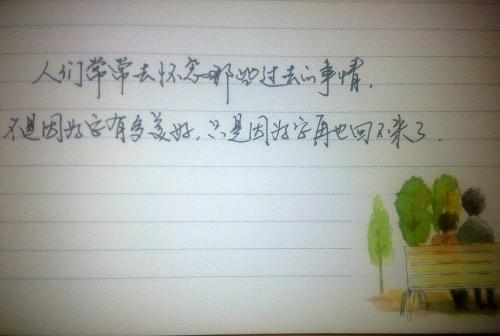 人们常常去怀念那些过去的事情,
不是因为它有多美好,只是因为它再也回不来了.